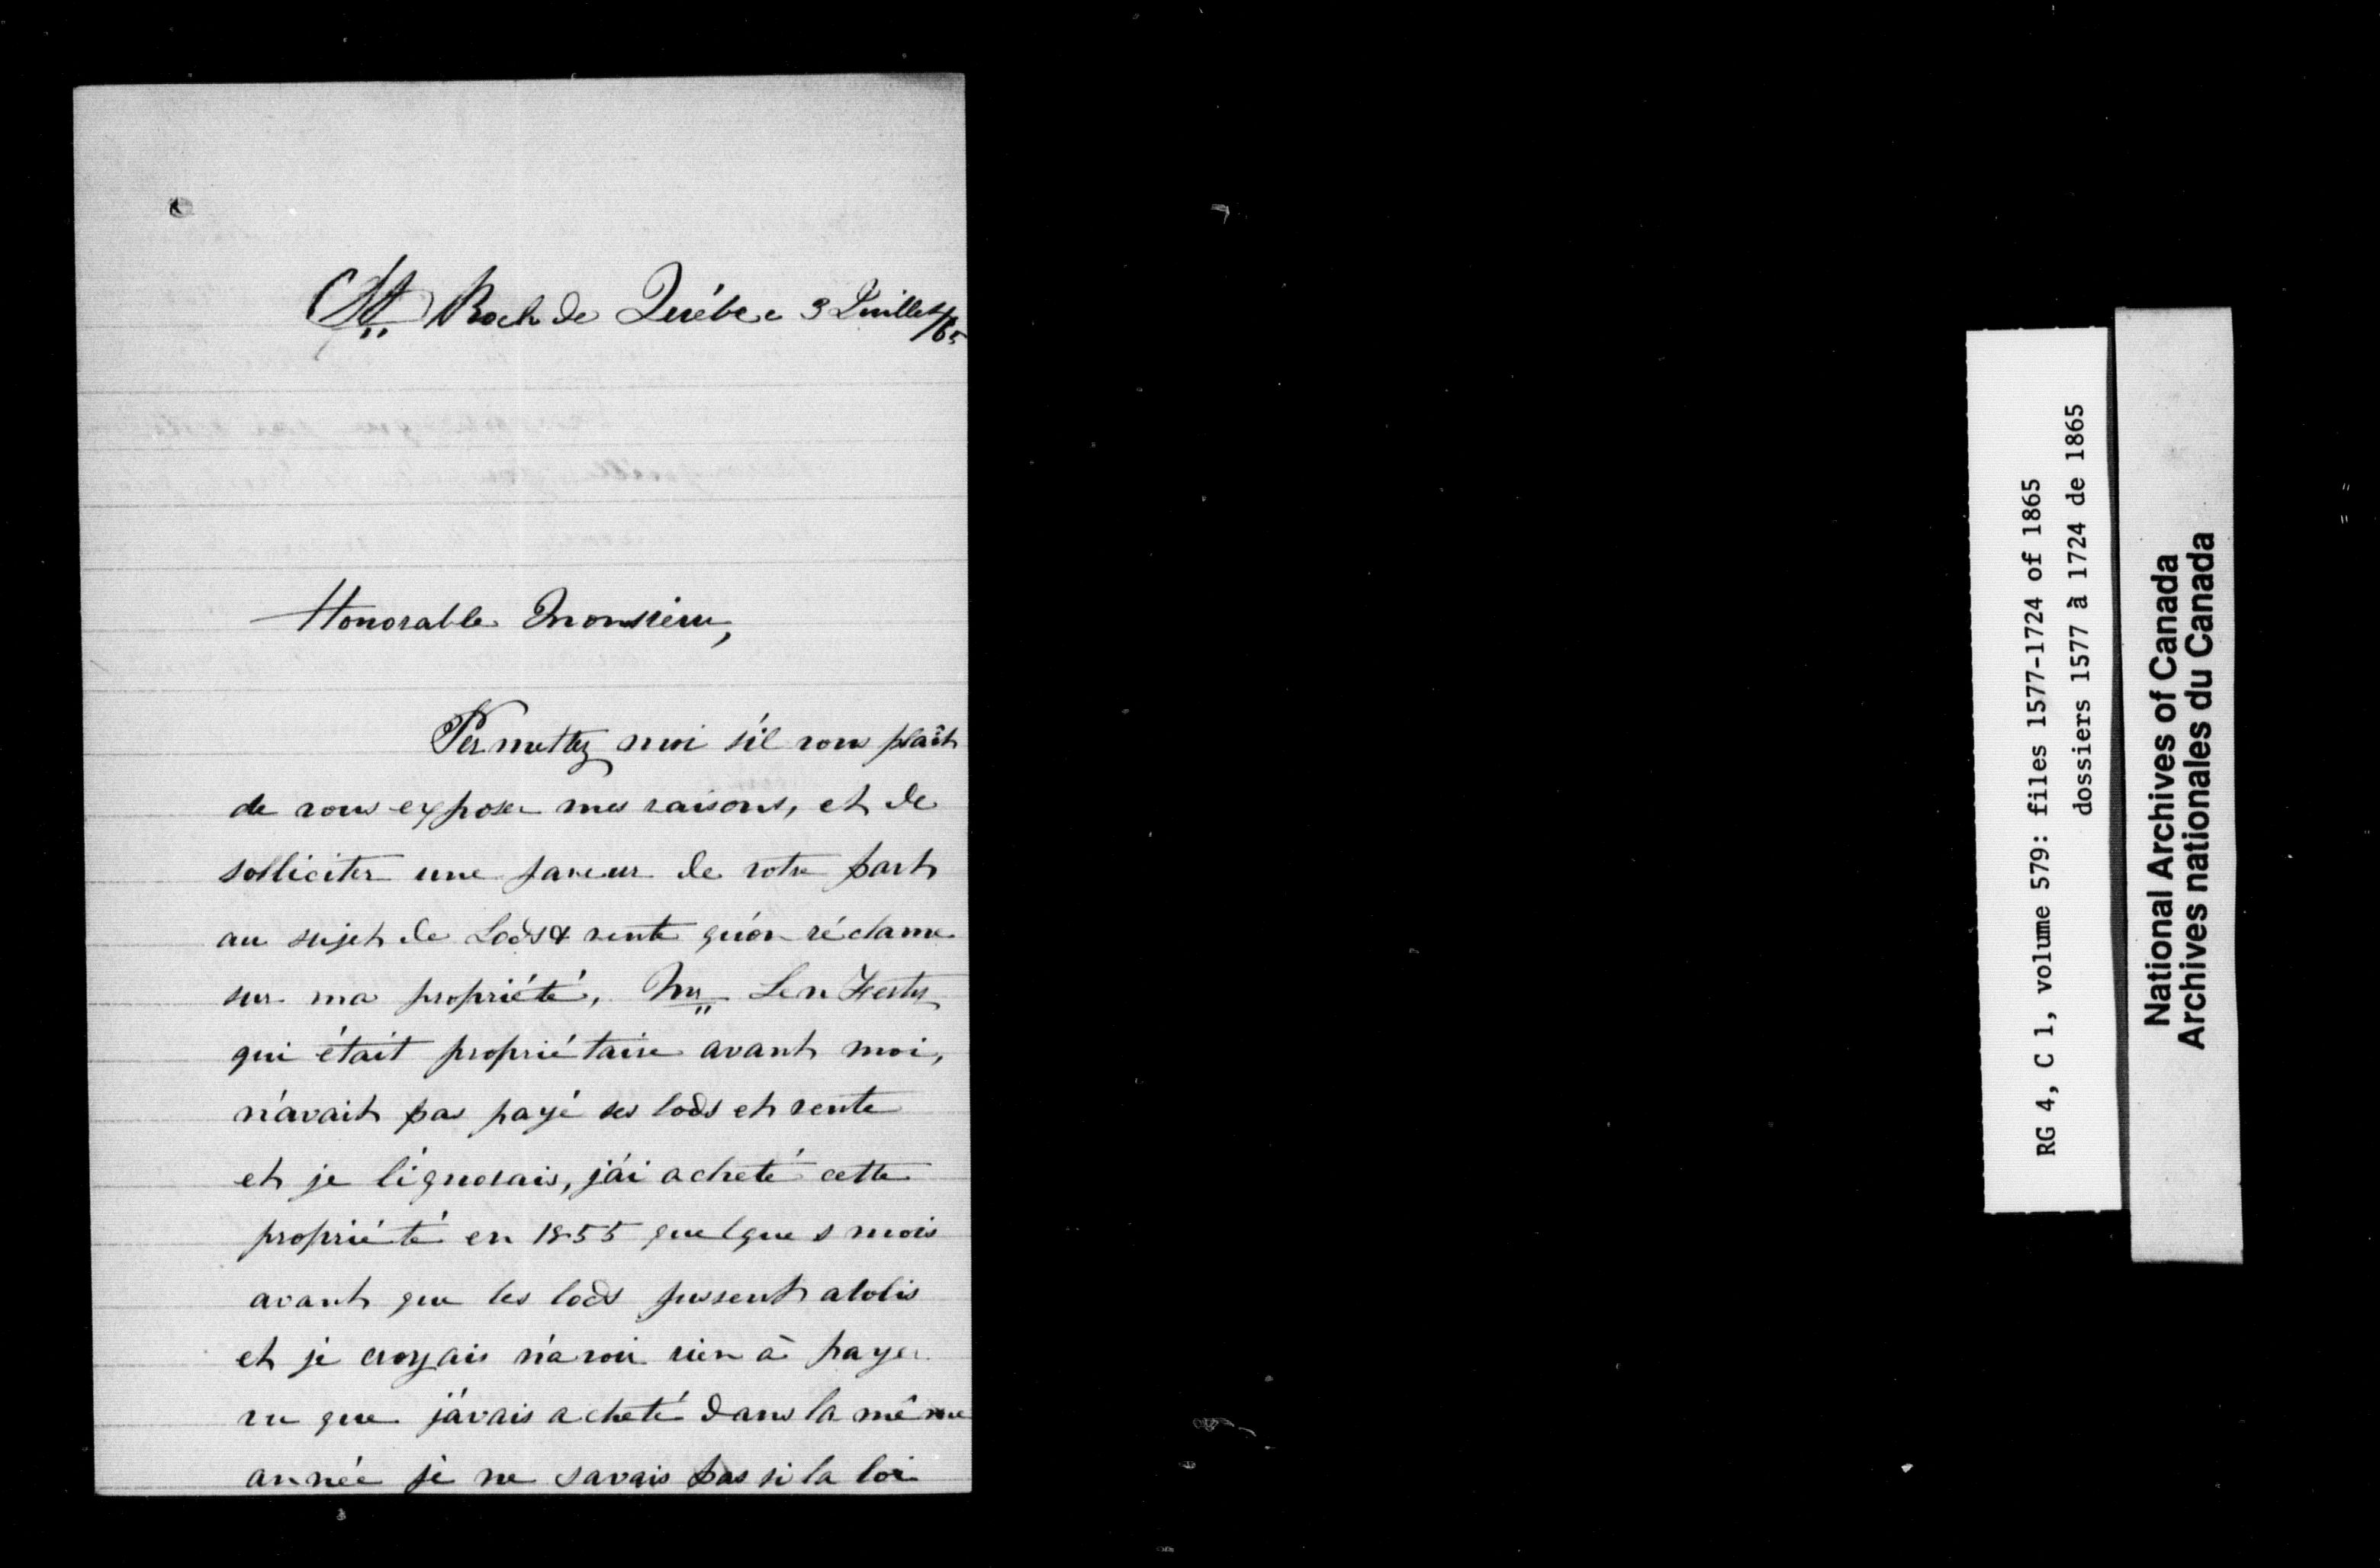 St Roch de Québec 3 Juillet/65
Honorable Monsieur,
Permettez moi s'il vous plaît
de vous exposer mes raisons, et de
solliciter une faveur de votre part
au sujet de Lods & rente qu'on réclame
sur ma propriété, Mr
qui était propriétaire avant moi,
n'avait pas payé ses lods et rente
et je l'ignorais, j'ai acheté cette
propriété en 1855 quelques mois
avant que les lods fussent abolis
et je croyais n'avoir rien à payer
vu que j'avais acheté dans la même
année je ne savais pas si la loi
RG 4, C 1, volume 579: files 1577-1724 of 1865
dossiers 1577 à 1724 de 1865
National Archives of Canada
Archives nationales du Canada